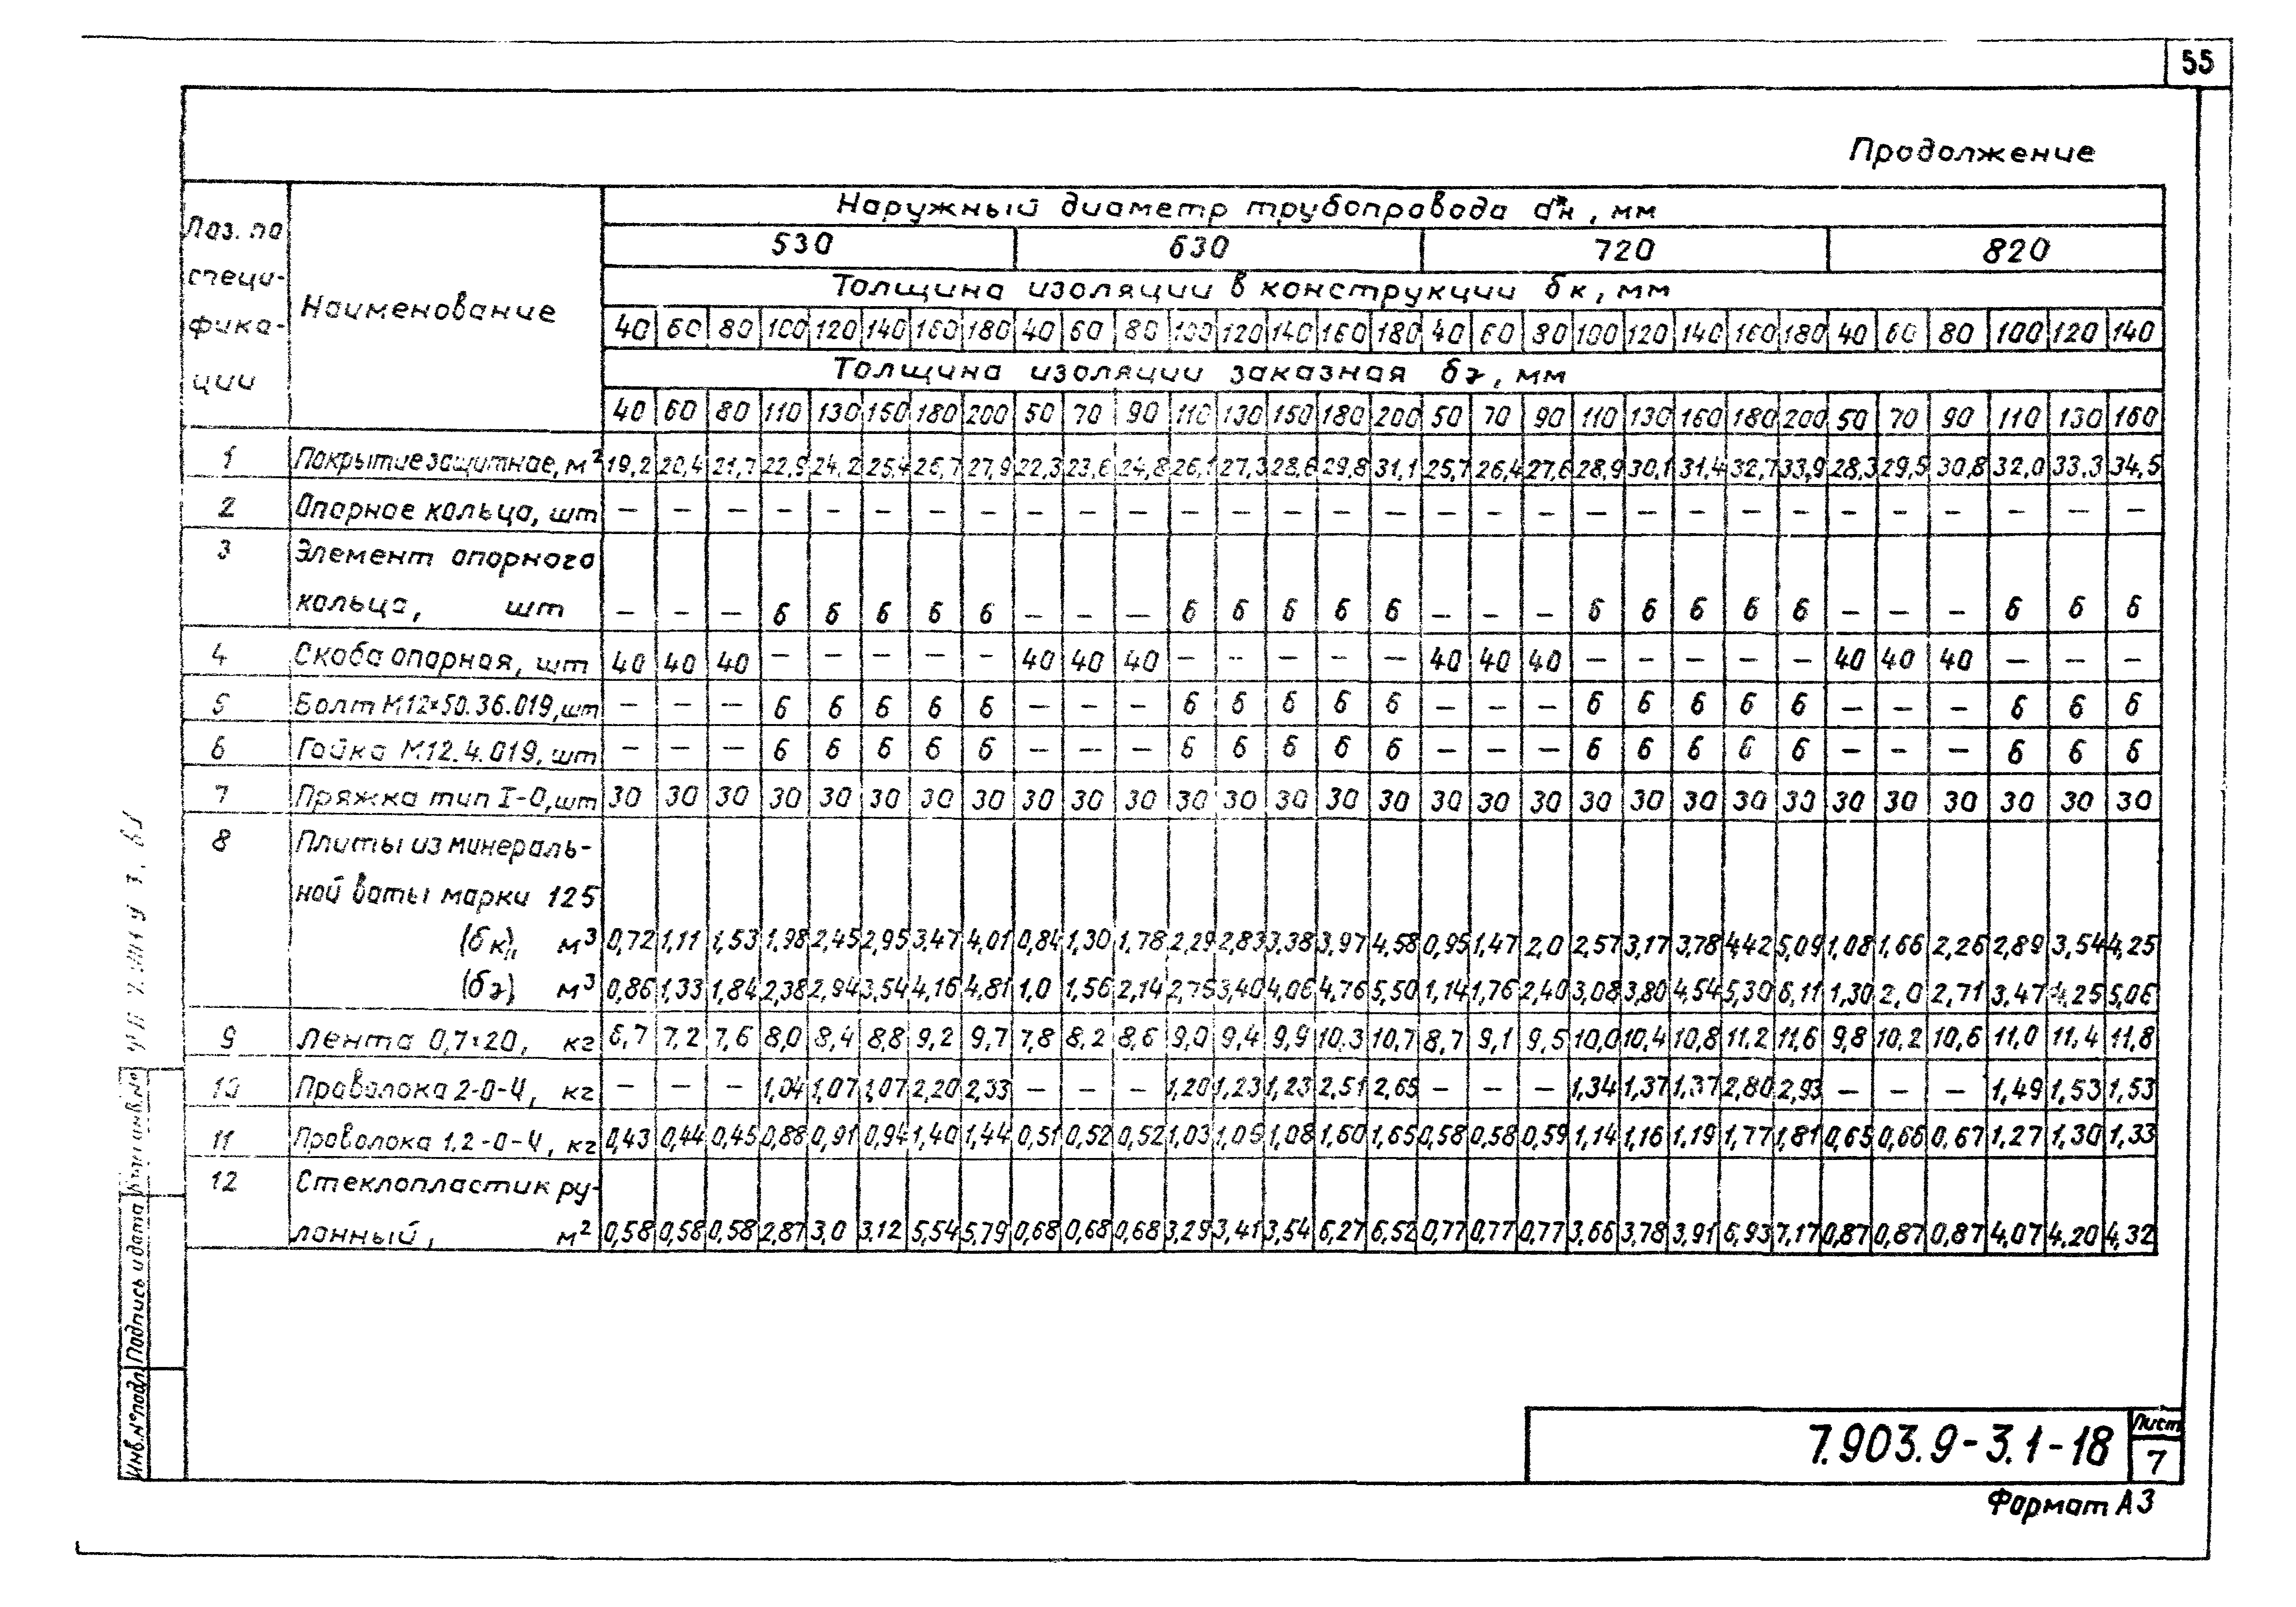 55
Продолжение
Поз. по специ- фика- ции
Наименование
Наружный диаметр трубопровода dн*, мм
530 630 720 820
Толщина изоляции в конструкции бк, мм
40 60 80 100 120 140 160 180 40 60 80 100 120 140 160 180 40 60 80 100 120 140 160 180 40 60 80 100 120 140
Толщина изоляции заказная бз, мм
40 60 80 110 130 150 180 200 50 70 90 110 130 150 180 200 50 70 90 110 130 160 180 200 50 70 90 110 130 160
1 Покрытие защитное, м² 19,2 20,4 21,7 22,9 24,2 25,4 26,7 27,9 22,3 23,6 24,8 26,1 27,3 28,6 29,8 31,1 25,7 26,4 27,6 28,9 30,1 31,4 32,7 33,9 28,3 29,5 30,8 32,0 33,3 34,5
2 Опорное кольцо, шт – – – – – – – – – – – – – – – – – – – – – – – – – – – – – –
3 Элемент опорного
кольца, шт – – – 6 6 6 6 6 – – – 6 6 6 6 6 – – – 6 6 6 6 6 – – – 6 6 6
4 Скоба опорная, шт 40 40 40 – – – – – 40 40 40 – – – – – 40 40 40 – – – – – 40 40 40 – – –
5 Болт М12×50.36.019, шт – – – 6 6 6 6 6 – – – 6 6 6 6 6 – – – 6 6 6 6 6 – – – 6 6 6
6 Гайка М12.4.019, шт – – – 6 6 6 6 6 – – – 6 6 6 6 6 – – – 6 6 6 6 6 – – – 6 6 6
7 Пряжка тип I-О, шт 30 30 30 30 30 30 30 30 30 30 30 30 30 30 30 30 30 30 30 30 30 30 30 30 30 30 30 30 30 30
8 Плиты из минераль-
ной ваты марки 125
(бк), м³ 0,72 1,11 1,53 1,98 2,45 2,95 3,47 4,01 0,84 1,30 1,78 2,29 2,83 3,38 3,97 4,58 0,95 1,47 2,0 2,57 3,17 3,78 4,42 5,09 1,08 1,66 2,26 2,89 3,54 4,25
(бз), м³ 0,86 1,33 1,84 2,38 2,94 3,54 4,16 4,81 1,0 1,56 2,14 2,75 3,40 4,06 4,76 5,50 1,14 1,76 2,40 3,08 3,80 4,54 5,30 6,11 1,30 2,0 2,71 3,47 4,25 5,06
9 Лента 0,7×20, кг 6,7 7,2 7,6 8,0 8,4 8,8 9,2 9,7 7,8 8,2 8,6 9,0 9,4 9,9 10,3 10,7 8,7 9,1 9,5 10,0 10,4 10,8 11,2 11,6 9,8 10,2 10,6 11,0 11,4 11,8
10 Проволока 2-О-Ч, кг – – – 1,04 1,07 1,07 2,20 2,33 – – – 1,20 1,23 1,23 2,51 2,65 – – – 1,34 1,37 1,37 2,80 2,93 – – – 1,49 1,53 1,53
11 Проволока 1,2-О-Ч, кг 0,43 0,44 0,45 0,88 0,91 0,94 1,40 1,44 0,51 0,52 0,52 1,03 1,05 1,08 1,60 1,65 0,58 0,58 0,59 1,14 1,16 1,19 1,77 1,81 0,65 0,66 0,67 1,27 1,30 1,33
12 Стеклопластик ру-
лонный, м² 0,58 0,58 0,58 2,87 3,0 3,12 5,54 5,79 0,68 0,68 0,68 3,29 3,41 3,54 6,27 6,52 0,77 0,77 0,77 3,66 3,78 3,91 6,93 7,17 0,87 0,87 0,87 4,07 4,20 4,32
Взам инв.№
Подпись и дата
Инв.№ подл
7.903.9-3.1-18
Лист
7
Формат А3